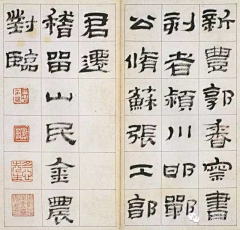 新豐郭香察書
刻者潁川邯鄲
公脩蘇張工郭
君遷
稽留山民金農
對臨